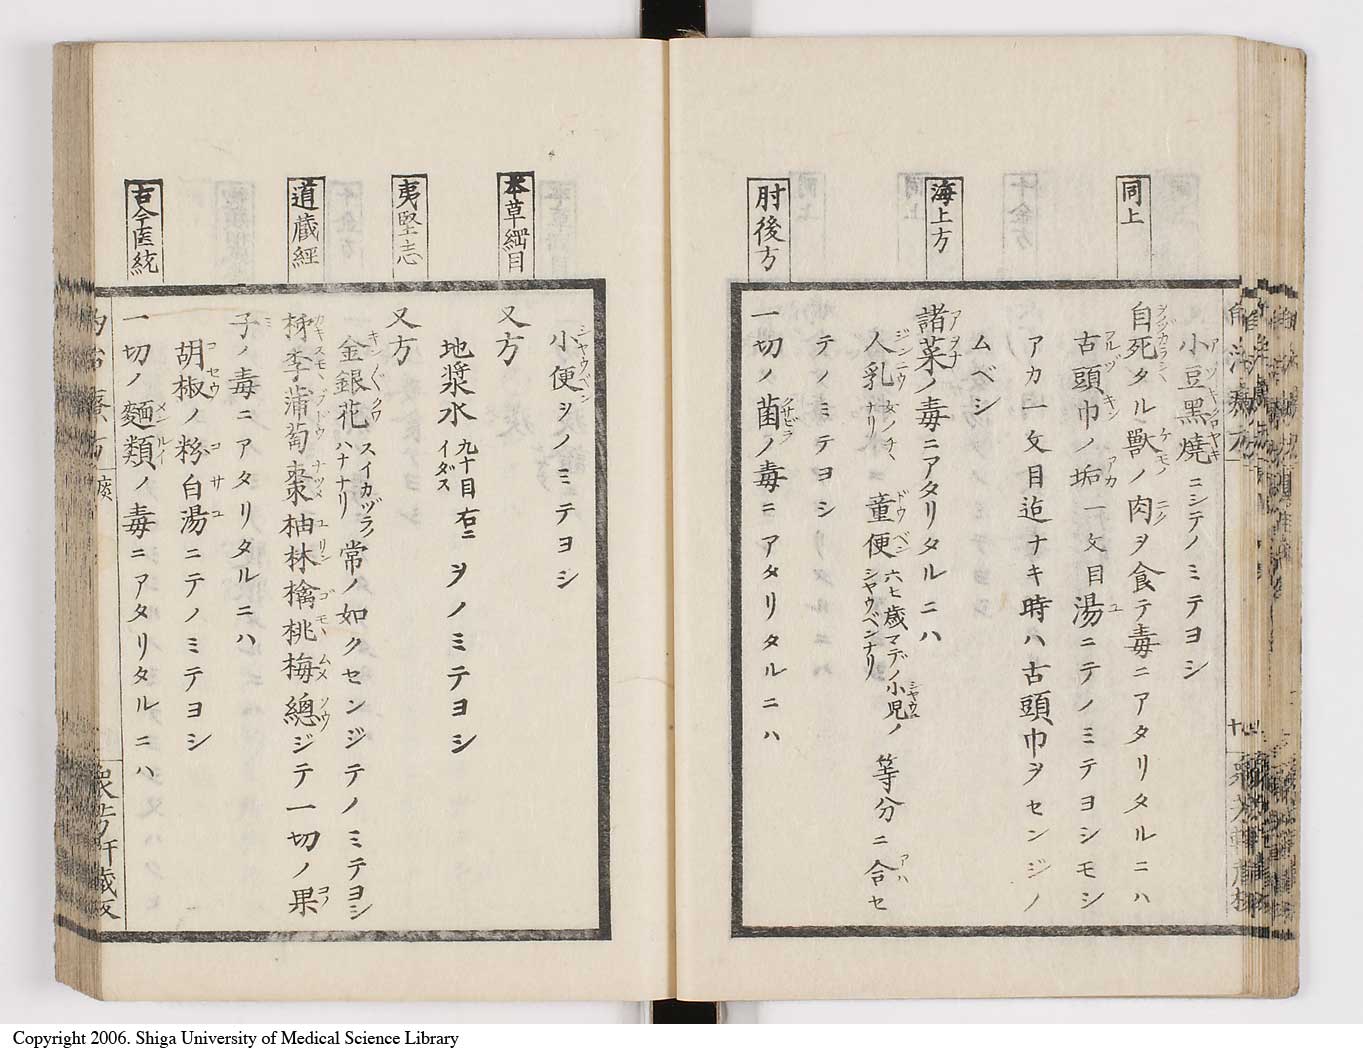 小豆黑燒ニシテノミテヨシ
同上
自死タル獸ノ肉ヲ食テ毒ニアタリタルニハ
古頭巾ノ垢一文目湯ニテノミテヨシモシ
アカ一文目迄ナキ時ハ古頭巾ヲセンジノ
ムベシ
海上方
諸菜ノ毒ニアタリタルニハ
人乳女ノチヽナリ 童便六七歳マデノ小児ノシヤウベンナリ 等分ニ合セ
テノミテヨシ
肘後方
一切ノ菌ノ毒ニアタリタルニハ
小便ヲノミテヨシ
本草綱目
又方
地漿水九十目右ニイダス ヲノミテヨシ
夷堅志
又方
金銀花スイカヅラノハナナリ 常ノ如クセンジテノミテヨシ
道蔵經
柹李蒲萄棗柚林檎桃梅總ジテ一切ノ果
子ノ毒ニアタリタルニハ
胡椒ノ粉白湯ニテノミテヨシ
古今医統
一切ノ麵類ノ毒ニアタリタルニハ
Copyright 2006. Shiga University of Medical Science Library